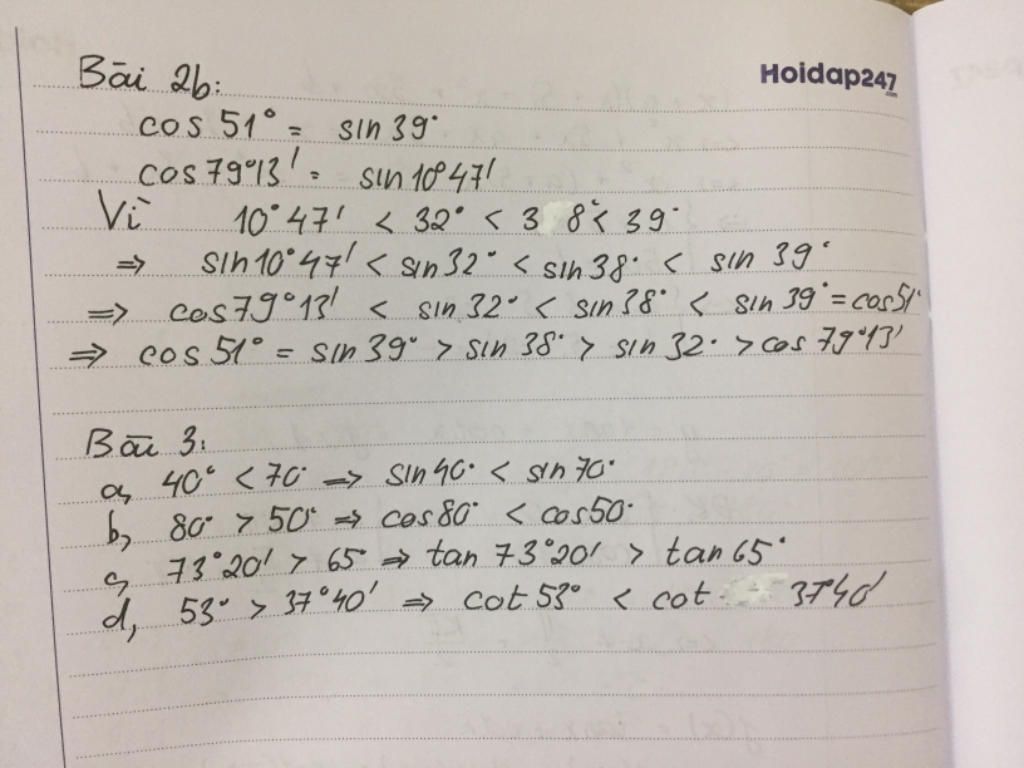 Hoidap247.com
Bài 2b:
cos 51° = sin 39°
cos 79°13' = sin 10°47'
Vì 10°47' < 32° < 38° < 39°
⇒ sin 10°47' < sin 32° < sin 38° < sin 39°
⇒ cos 79°13' < sin 32° < sin 38° < sin 39° = cos 51°
⇒ cos 51° = sin 39° > sin 38° > sin 32° > cos 79°13'
Bài 3:
a, 40° < 70° ⇒ sin 40° < sin 70°
b, 80° > 50° ⇒ cos 80° < cos 50°
c, 73°20' > 65° ⇒ tan 73°20' > tan 65°
d, 53° > 37°40' ⇒ cot 53° < cot 37°40'